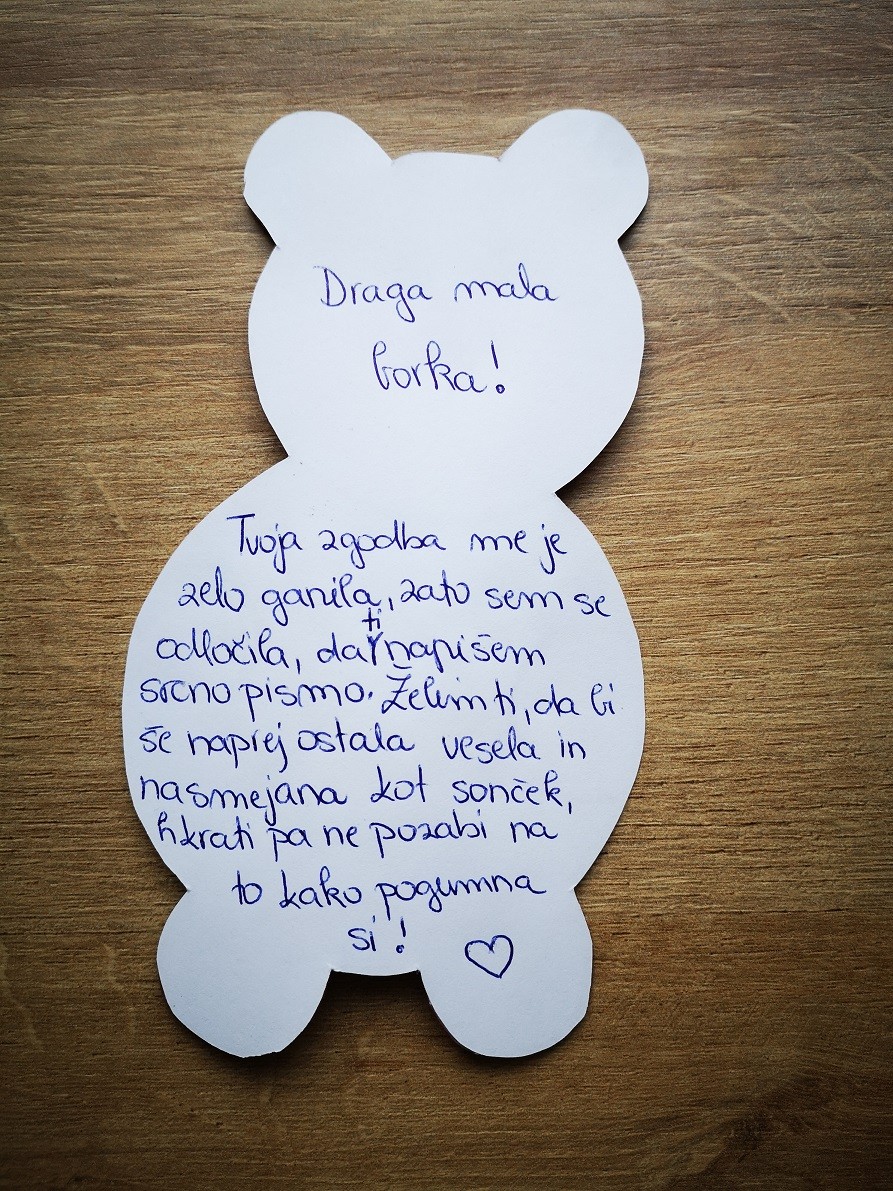 Draga mala
borka!
Tvoja zgodba me je
zelo ganila, zato sem se
odločila, da ti napišem
srčno pismo. Želim ti, da bi
še naprej ostala vesela in
nasmejana kot sonček,
hkrati pa ne pozabi na
to kako pogumna
si! ♡